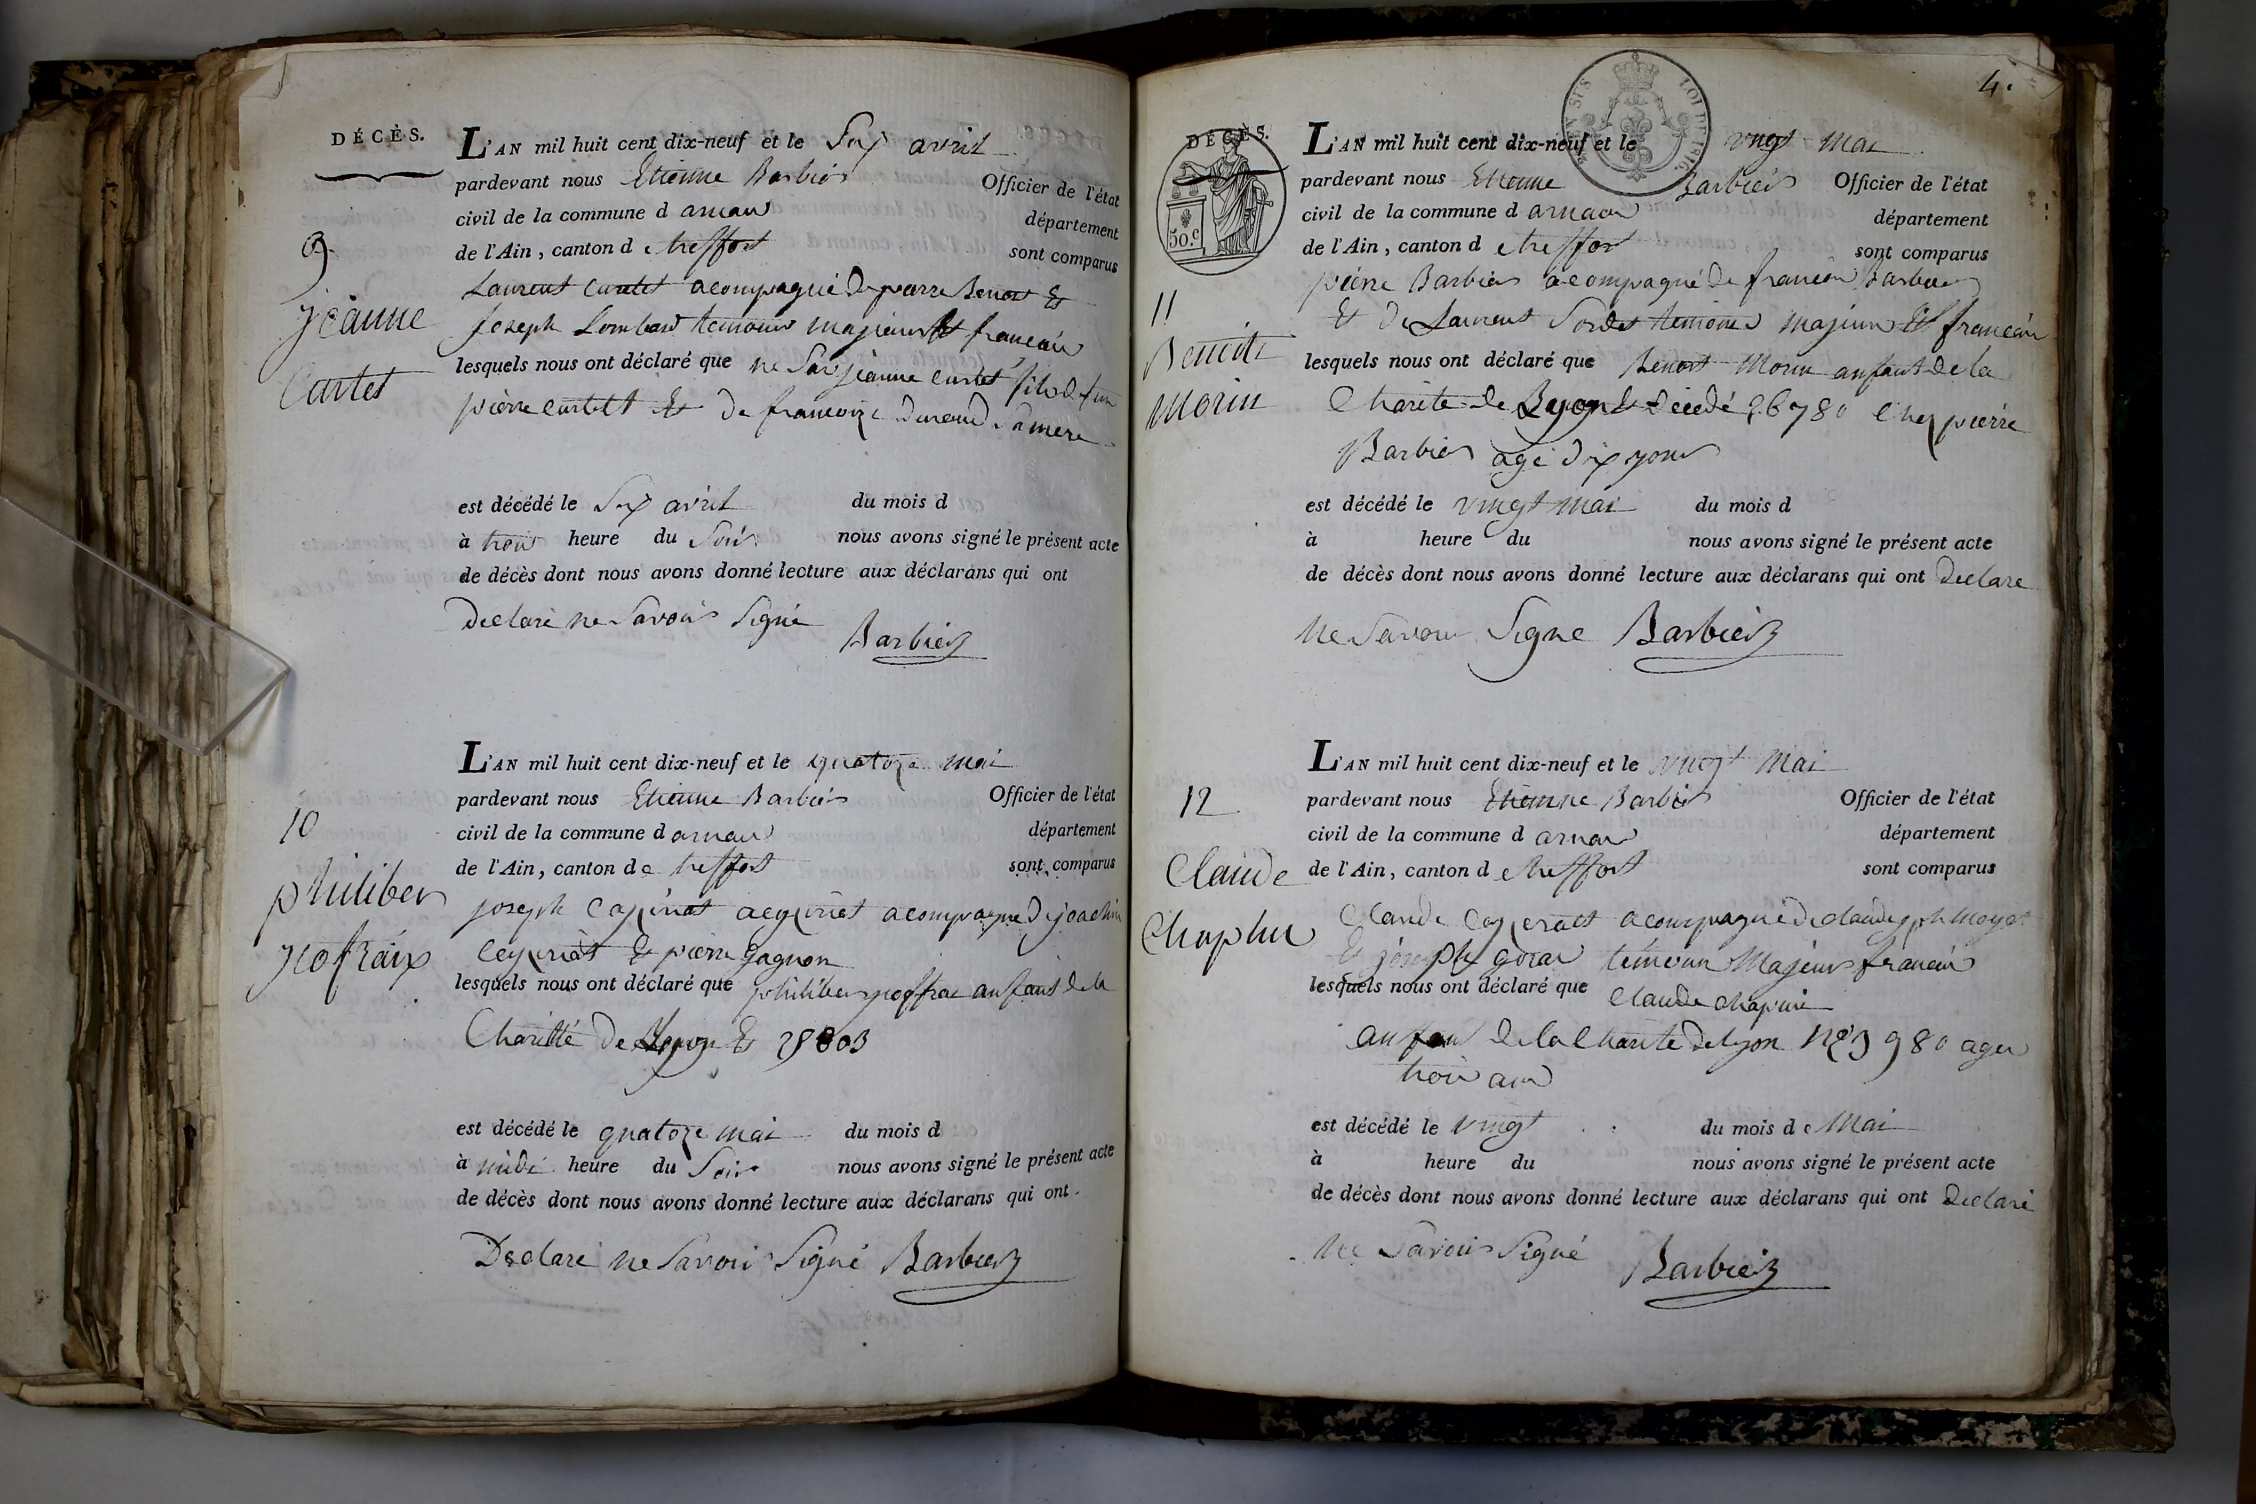 DÉCÈS.
L'AN mil huit cent dix-neuf et le Six avril
pardevant nous Etienne Barbier Officier de l'état
civil de la commune d arnan département
de l'Ain, canton d e treffort sont comparus
9.
jeanne
Curtet
Laurent Curtet acompagné de pierre Benoit Et
joseph Lombard temoins majeurs Et francais
lesquels nous ont déclaré que jeanne Curtet
pierre Curtet Et De francoize Durand Sa mere
est décédé le Six avril du mois d
à trois heure du Soir nous avons signé le présent acte
de décès dont nous avons donné lecture aux déclarans qui ont
Declaré ne Savoir Signé
Barbier
L'AN mil huit cent dix-neuf et le quatorze mai
pardevant nous Etienne Barbier Officier de l'état
civil de la commune d arnan département
de l'Ain, canton d e treffort sont comparus
10
philiber
joseph acompagne De joachim
Et pierre gagnon
lesquels nous ont déclaré que philiber anfant de la
Charitté De Lyon 
est décédé le quatorze mai du mois d
à midi heure du Soir nous avons signé le présent acte
de décès dont nous avons donné lecture aux déclarans qui ont
Declaré ne Savoir Signé Barbier
4.
DÉCÈS.
50.c
LOI DE 1816
L'AN mil huit cent dix-neuf et le vingt mai
pardevant nous Etienne Barbier Officier de l'état
civil de la commune d arnan département
de l'Ain, canton d e treffort sont comparus
11
Benoit
Morin
pierre Barbier acompagné De francois Barbier
Et De Laurent temoins majeurs Et francais
lesquels nous ont déclaré que Benoit Morin anfant de la
Charité de Lyon decedé 26780 Chez pierre
Barbier agé Dix jours
est décédé le vingt mai du mois d
à heure du nous avons signé le présent acte
de décès dont nous avons donné lecture aux déclarans qui ont Declare
ne Savoir Signe Barbier
L'AN mil huit cent dix-neuf et le vingt mai
pardevant nous Etienne Barbier Officier de l'état
civil de la commune d arnan département
de l'Ain, canton d e treffort sont comparus
12
Claude
Chapuy
Claude acompagné De claude joseph
Et joseph temoins Majeurs francais
lesquels nous ont déclaré que Claude
anfan de la Charité De Lyon 980 ager
trois ans
est décédé le vingt du mois d e Mai
à heure du nous avons signé le présent acte
de décès dont nous avons donné lecture aux déclarans qui ont Declaré
ne Savoir Signé
Barbier